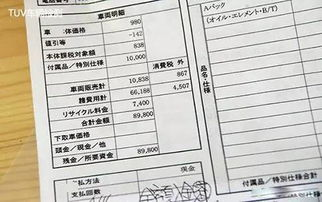 TUV车
車両明細
Aパック
(オイル・エレメント・B/T)
車 体価格 980
値引等 -142
本体課税対象額 838
付属品／特別仕様 10,000
消費税 外
車両販売計 10,838 867
諸費用計 66,188 4,507
リサイクル料金 7,400
合計金額 89,800
下取車価格
頭金／現金／他
残金／所要資金 89,800
品名・仕様
現金
支払回数
付属品／特別仕様合計